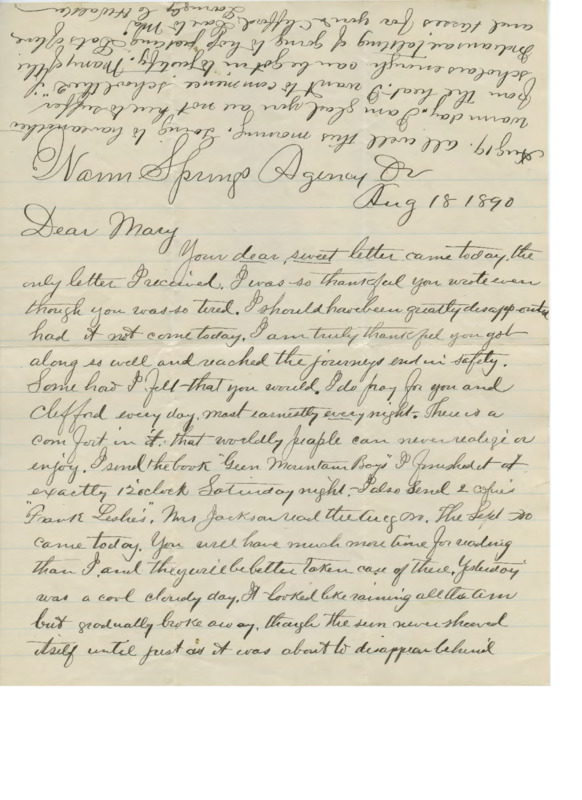 Warm Springs Agency Or
Aug 18 1890
Dear Mary
Your dear, sweet letter came today, the
only letter I received. I was so thankful you wrote even
though you was so tired. I should have been greatly disappointed
had it not come today. I am truly thankful you got
along so well and reached the journeys end in safety.
Some how I felt that you would. I do pray for you and
Clifford every day, most earnestly every night. There is a
comfort in it that worldly people can never realize or
enjoy. I send the book "Green Mountain Boys" I finished it at
exactly 12 oclock Saturday night. I also send 2 copies
"Frank Leslies". Mrs Jackson read the Aug no. The Sept no
came today. You will have much more time for reading
than I, and they will be better taken care of there. Yesterday
was a cool cloudy day. It looked like raining all the am
but gradually broke away, though the sun never showed
itself until just as it was about to disappear behind
Aug 19. all well this morning. Going to have another
warm day. I am glad you are not here to suffer
from the heat. I want to commence school the 1st if
scholars enough can be got in to justify. Many of the
Indians are talking of going to hop picking. Lots of love
and kisses for you & Clifford. Love to Ma.
Lovingly